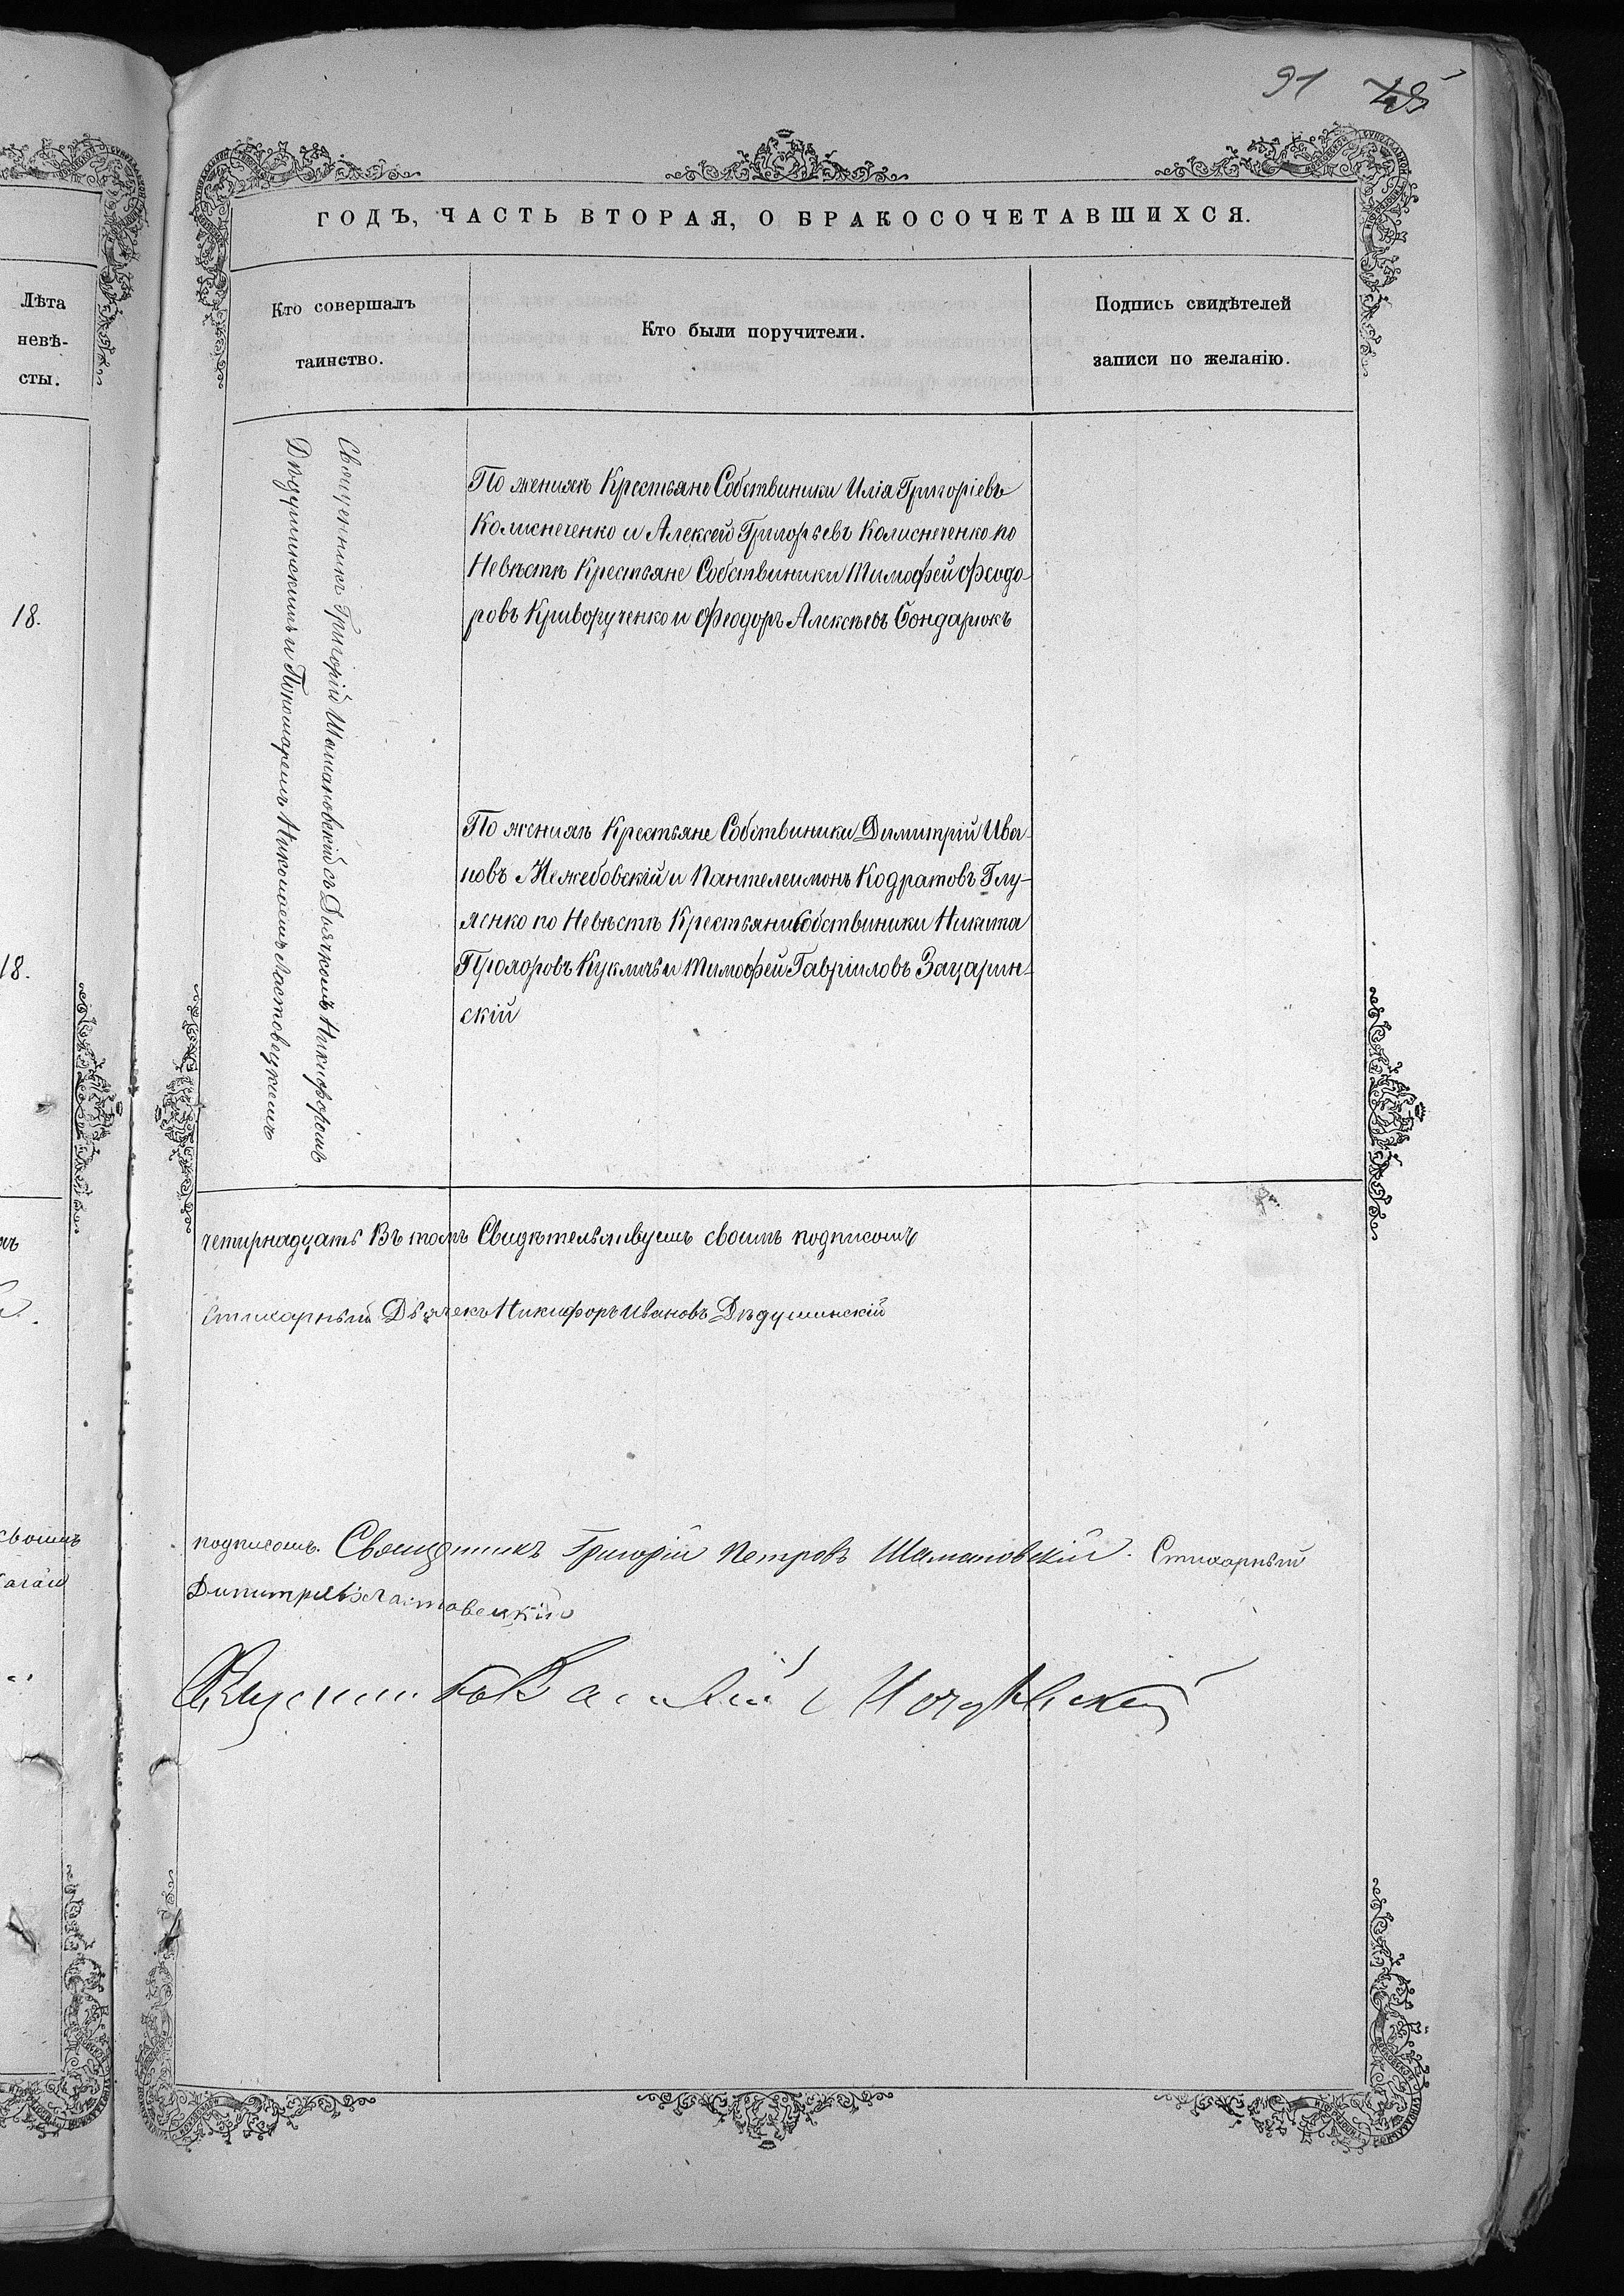 91 45
ГОДЪ, ЧАСТЬ ВТОРАЯ, О БРАКОСОЧЕТАВШИХСЯ.
Лѣта
невѣ-
сты.
Кто совершалъ
таинство.
Кто были поручители.
Подпись свидѣтелей
записи по желанію.
18.
18.
Священникъ Григорій Шамановскій съ Дьячкомъ Никифоромъ
Дѣдушинскимъ и Пономаремъ Николаемъ Ластовецкимъ
По женихѣ Крестьяне Собствиники Илія Григоріевъ
Колисниченко и Алексей Григорьевъ Колисниченко по
Невѣстѣ Крестьяне Собствиники Тимофей Феодо-
ровъ Криворученко и Феодоръ Алексѣевъ Бондарюкъ
По женихѣ Крестьяне Собствиники Димитрій Ива-
новъ Межебовскій и Пантелеимонъ Кодратовъ Глу-
ленко по Невѣстѣ Крестьяни Собствиники Никита
Прохоровъ и Тимофей Гавріиловъ Зацарин-
скій
четирнадцать Въ томъ своимъ подписомъ
Стихарный Дьячекъ Никифоръ Ивановъ Дѣдушинскій
своимъ
подписомъ. Священникъ Григорій Петровъ Шамановскій. Стихарный
Димитріевъ Ластовецкій